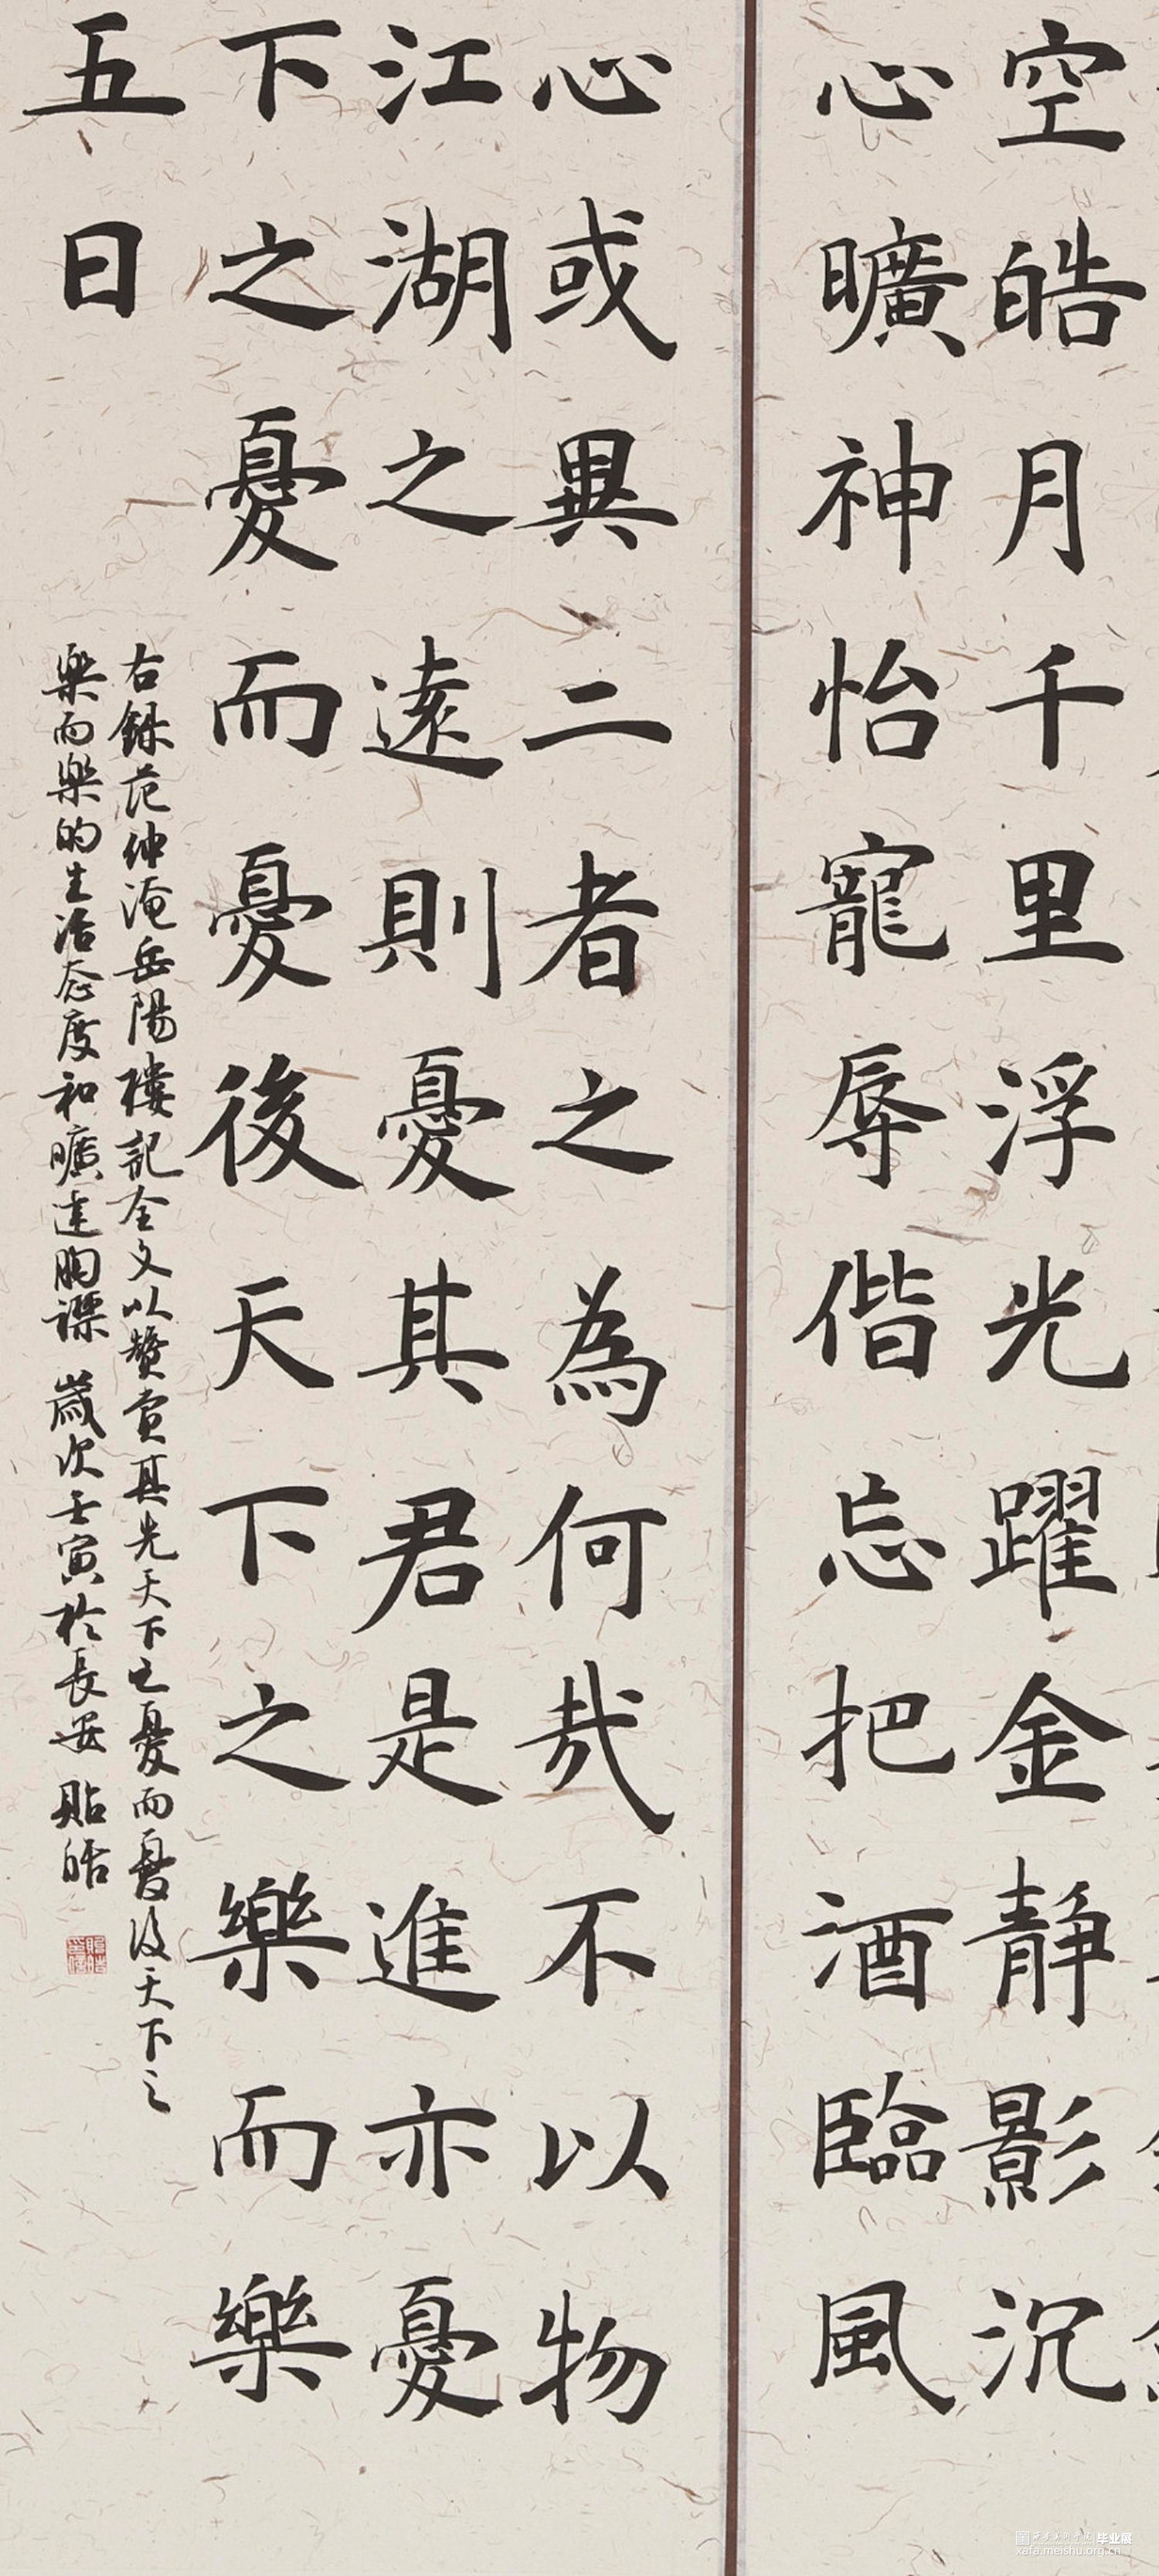 空皓月千里浮光躍金静影沉
心曠神怡寵辱偕忘把酒臨風
心或異二者之為何哉不以物
江湖之遠則憂其君是進亦憂
下之憂而憂後天下之樂而樂
五日
右録范仲淹岳陽樓記全文以赞賞其先天下之憂而憂後天下之
樂而樂的生活态度和曠達胸襟 歲次壬寅於長安 貼皓
毕业展
xafa.meishu.org.cn